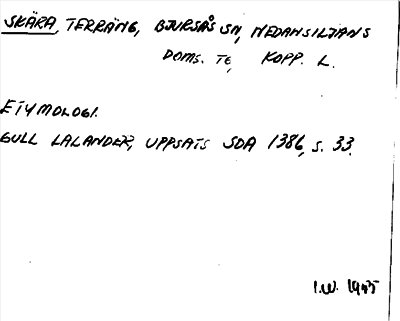 SKÄRA, TERRÄNG, BJURSÅS SN, NEDANSILJANS
DOMS. TE, KOPP. L.
ETYMOLOGI.
GULL LALANDER, UPPSATS SDA 1386, S. 33.
I.W. 1975